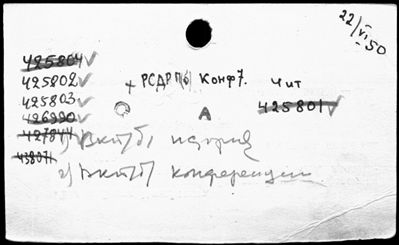 22/VI-50
425804 ✓
425802 ✓
425803 ✓
426990 ✓
427844
43807
+ РСДРП(б) Конф 7. Чит
А 425801 ✓
1) Вкп/б/ история
2) Вкп/б/ конференции